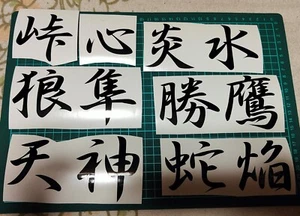 峠心炎水
狼隼勝鷹
天神蛇焔